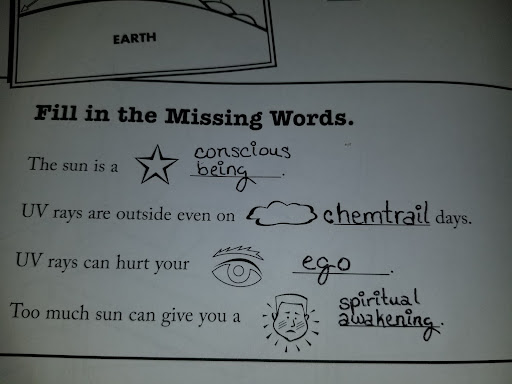 EARTH
Fill in the Missing Words.
The sun is a conscious
being.
UV rays are outside even on chemtrail days.
UV rays can hurt your ego.
Too much sun can give you a spiritual
awakening.